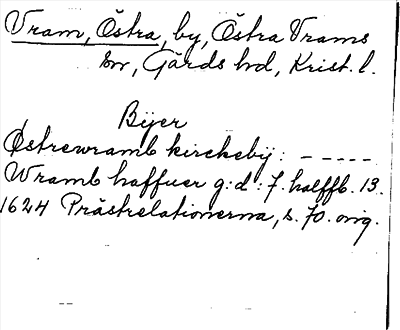 Vram, Östra, by, Östra Vrams
sn, Gärds hd, Krist. l.
Bÿer
Østrewramb kirckebÿ: -----
Wramb haffuer g:d: 7. halffb. 13.
1624 Prästrelationerna, s. 70. orig.